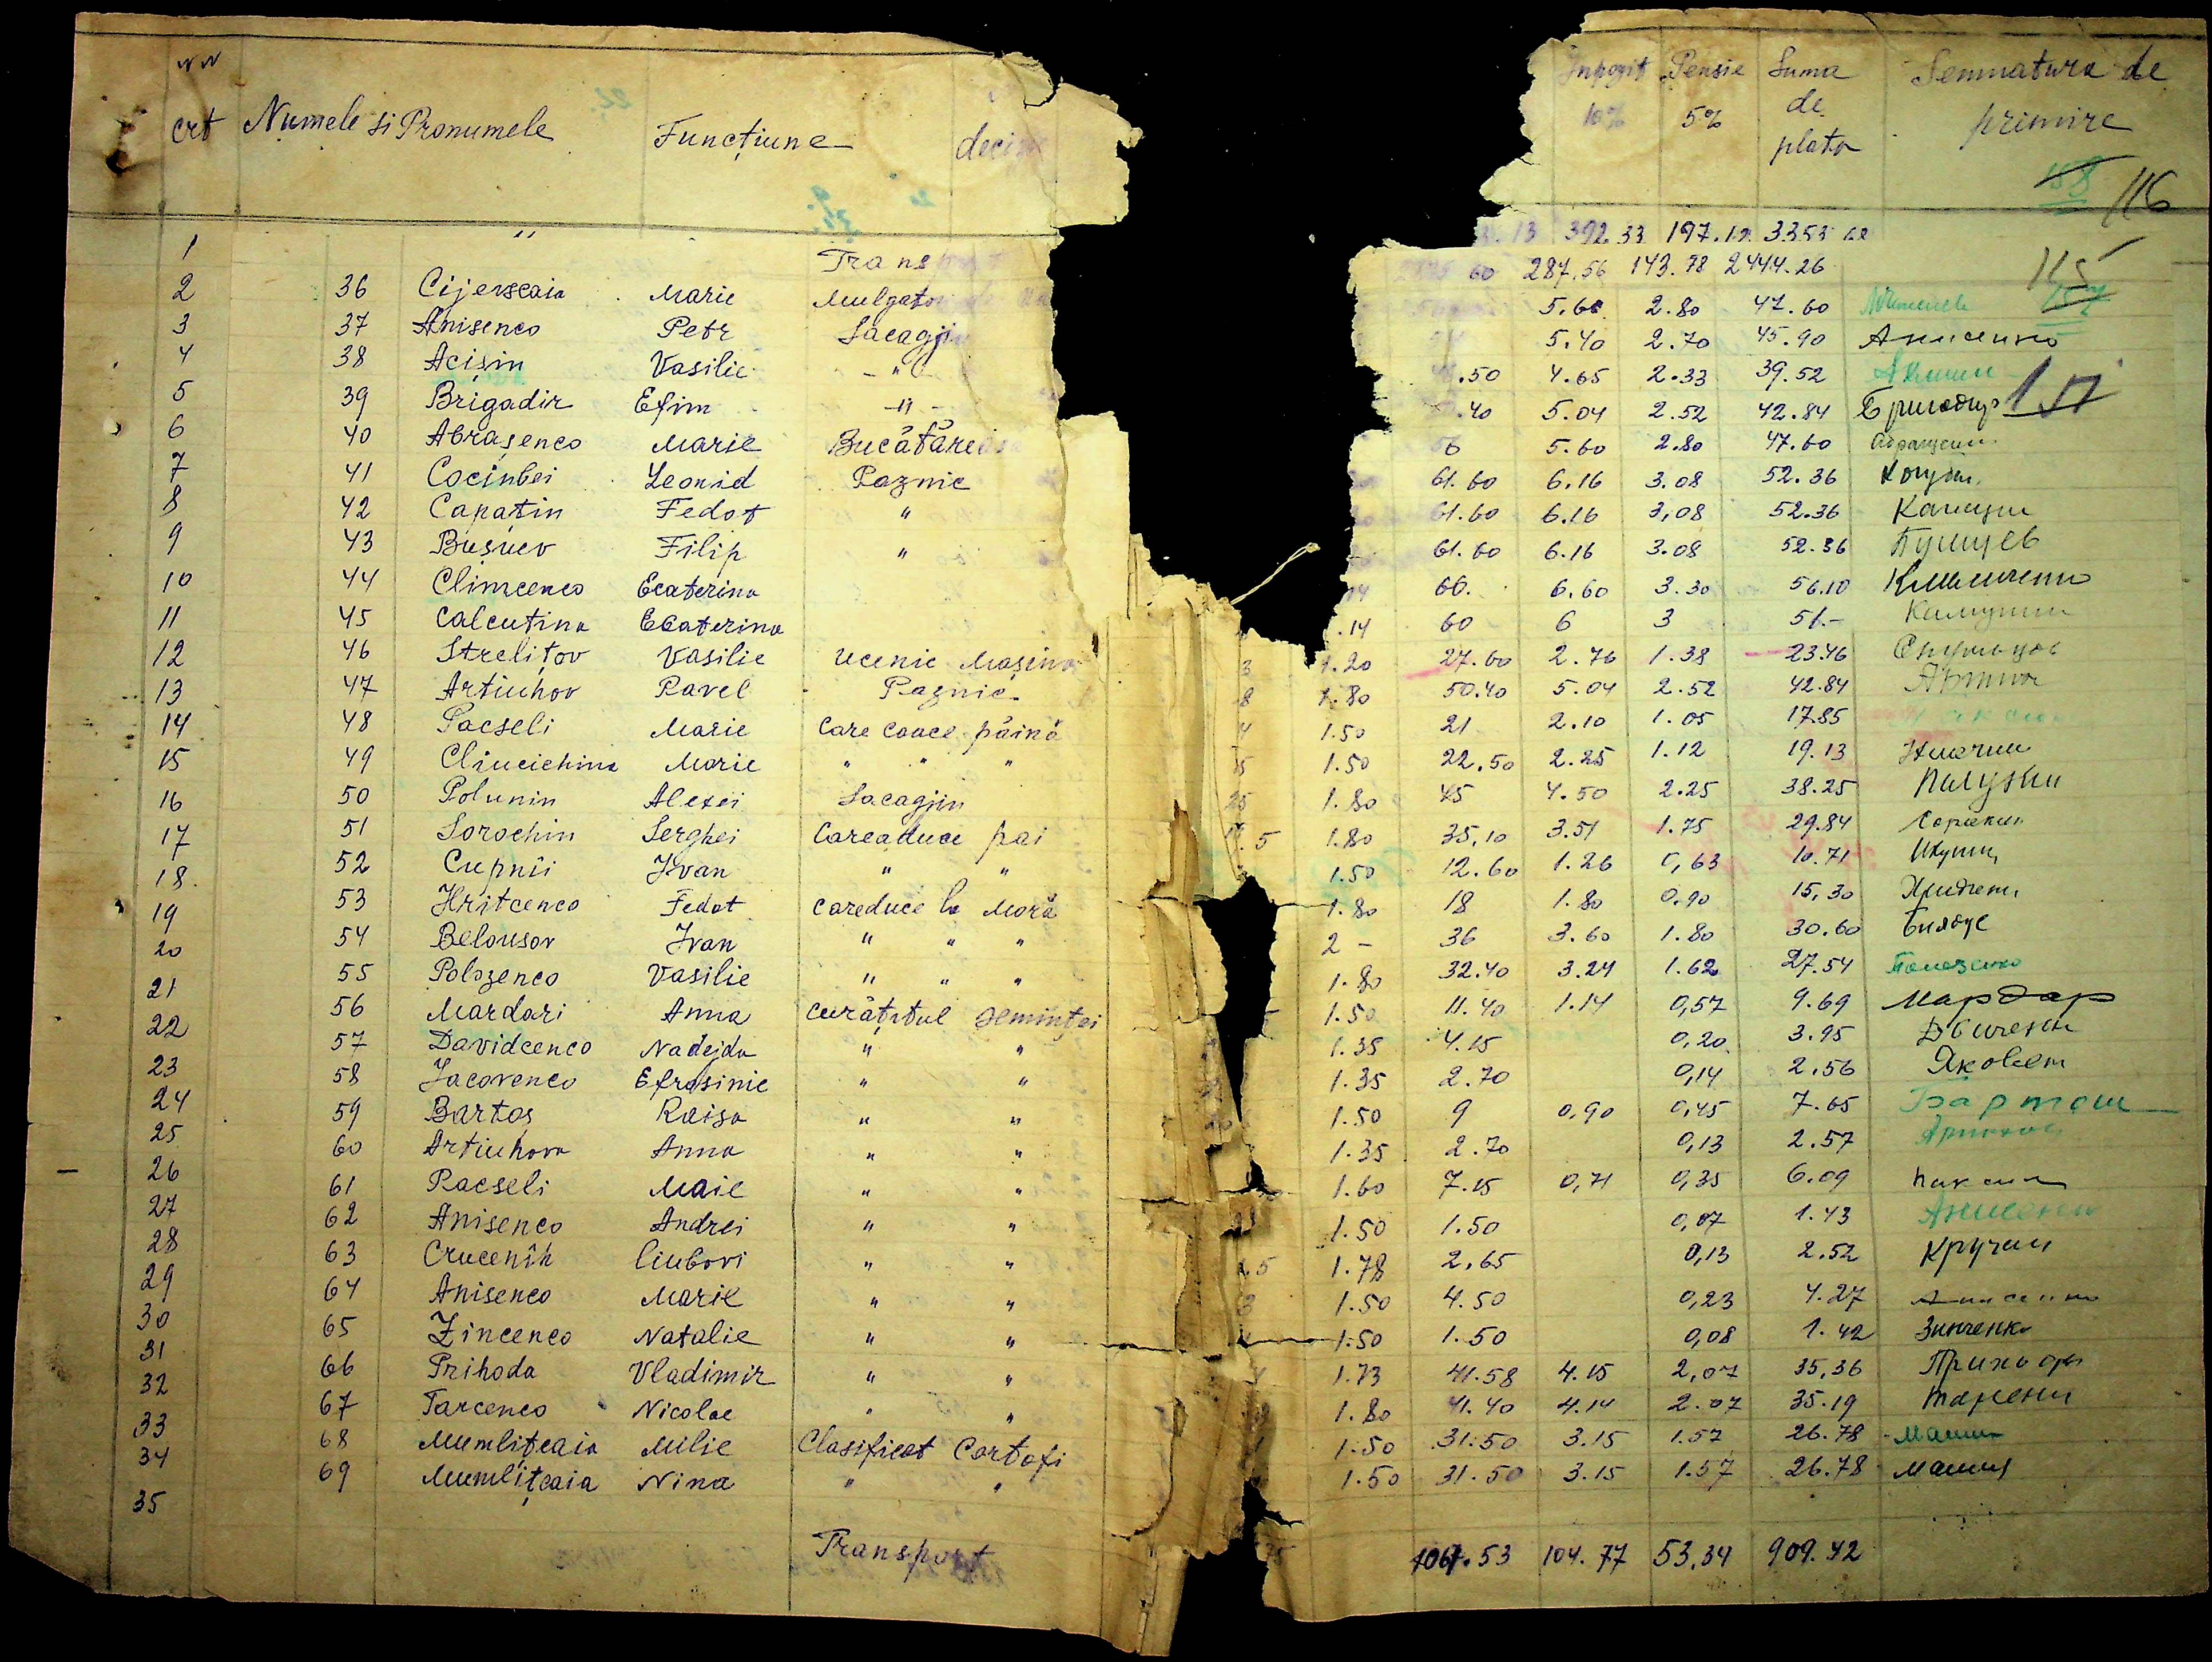 NN crt Numele si Pronumele Funcțiune Impozit 10% Pensie 5% Suma de plata Semnatura de primire
58 116
" 13 392.33 197.12 3353
1 Transport 60 287.56 143.78 2444.26 115
2 36 Cijevscaia Marie Mulgator 5.60 2.80 47.60
3 37 Anisenco Petr Sacagiu 5.40 2.70 45.90 Анисенко
4 38 Acișin Vasilie -"- .50 4.65 2.33 39.52 Акишин
5 39 Brigadir Efim -"- .40 5.04 2.52 42.84 Бригадир
6 40 Abrașenco Marie Bucătăreasa 56 5.60 2.80 47.60
7 41 Cociubei Leonid Paznic 61.60 6.16 3.08 52.36
8 42 Capațin Fedot " 61.60 6.16 3,08 52.36
9 43 Bușuev Filip " 61.60 6.16 3.08 52.36
10 44 Climcenco Ecaterina 66. 6.60 3.30 56.10
11 45 Calcutina Ecaterina .14 60 6 3 51.-
12 46 Strelițov Vasilie Ucenic Mașina 3 1.20 27.60 2.76 1.38 23.46
13 47 Artiuhov Pavel Paznic 8 1.80 50.40 5.04 2.52 42.84
14 48 Pacseli Marie Care coace păină 4 1.50 21 2.10 1.05 17.85
15 49 Cliucichina Marie " " " 5 1.50 22.50 2.25 1.12 19.13
16 50 Polunin Alexei Sacagjiu 25 1.80 45 4.50 2.25 38.25
17 51 Sorochin Serghei Careaduce pai 5 1.80 35,10 3.51 1.75 29.84 Сорокин
18. 52 Cupnii Ivan " " 1.50 12.60 1.26 0,63 10.71
19 53 Hritcenco Fedot Careduce la Moră 1.80 18 1.80 0.90 15,30
20 54 Belousov Ivan " " " 2 - 36 3.60 1.80 30.60
21 55 Polozenco Vasilie " " " 1.80 32.40 3.24 1.62 27.54 Полозенко
22 56 Mardari Anna Curățitul semintei 1.50 11.40 1.14 0,57 9.69 Мардар
23 57 Davidcenco Nadejda " " 1.35 4.15 0,20 3.95
24 58 Iacovenco Efrosinie " " 1.35 2.70 0,14 2.56 Яковен
25 59 Bartoș Raisa " " 1.50 9 0,90 0,45 7.65 Бартош
26 60 Artiuhova Anna " " 1.35 2.70 0,13 2.57
27 61 Pacseli Maie " " 1.60 7.15 0,71 0,35 6.09
28 62 Anisenco Andrei " " 1.50 1.50 0,07 1.43
29 63 Crucenîh Liubovi " " .5 1.78 2,65 0,13 2.52
30 64 Anisenco Marie " " 3 1.50 4.50 0,23 4.27 Анисенко
31 65 Zincenco Natalie " " 1.50 1.50 0,08 1.42 Зинченко
32 66 Prihoda Vladimir " " 1.73 41.58 4.15 2,07 35,36
33 67 Tarcenco Nicolae " " 1.80 41.40 4.14 2.07 35.19
34 68 Mumlițcaia Milie Clasificat Cartofi 1.50 31.50 3.15 1.57 26.78
35 69 Mumlițcaia Nina " " 1.50 31.50 3.15 1.57 26.78
Transport 1067.53 104.77 53,34 909.42